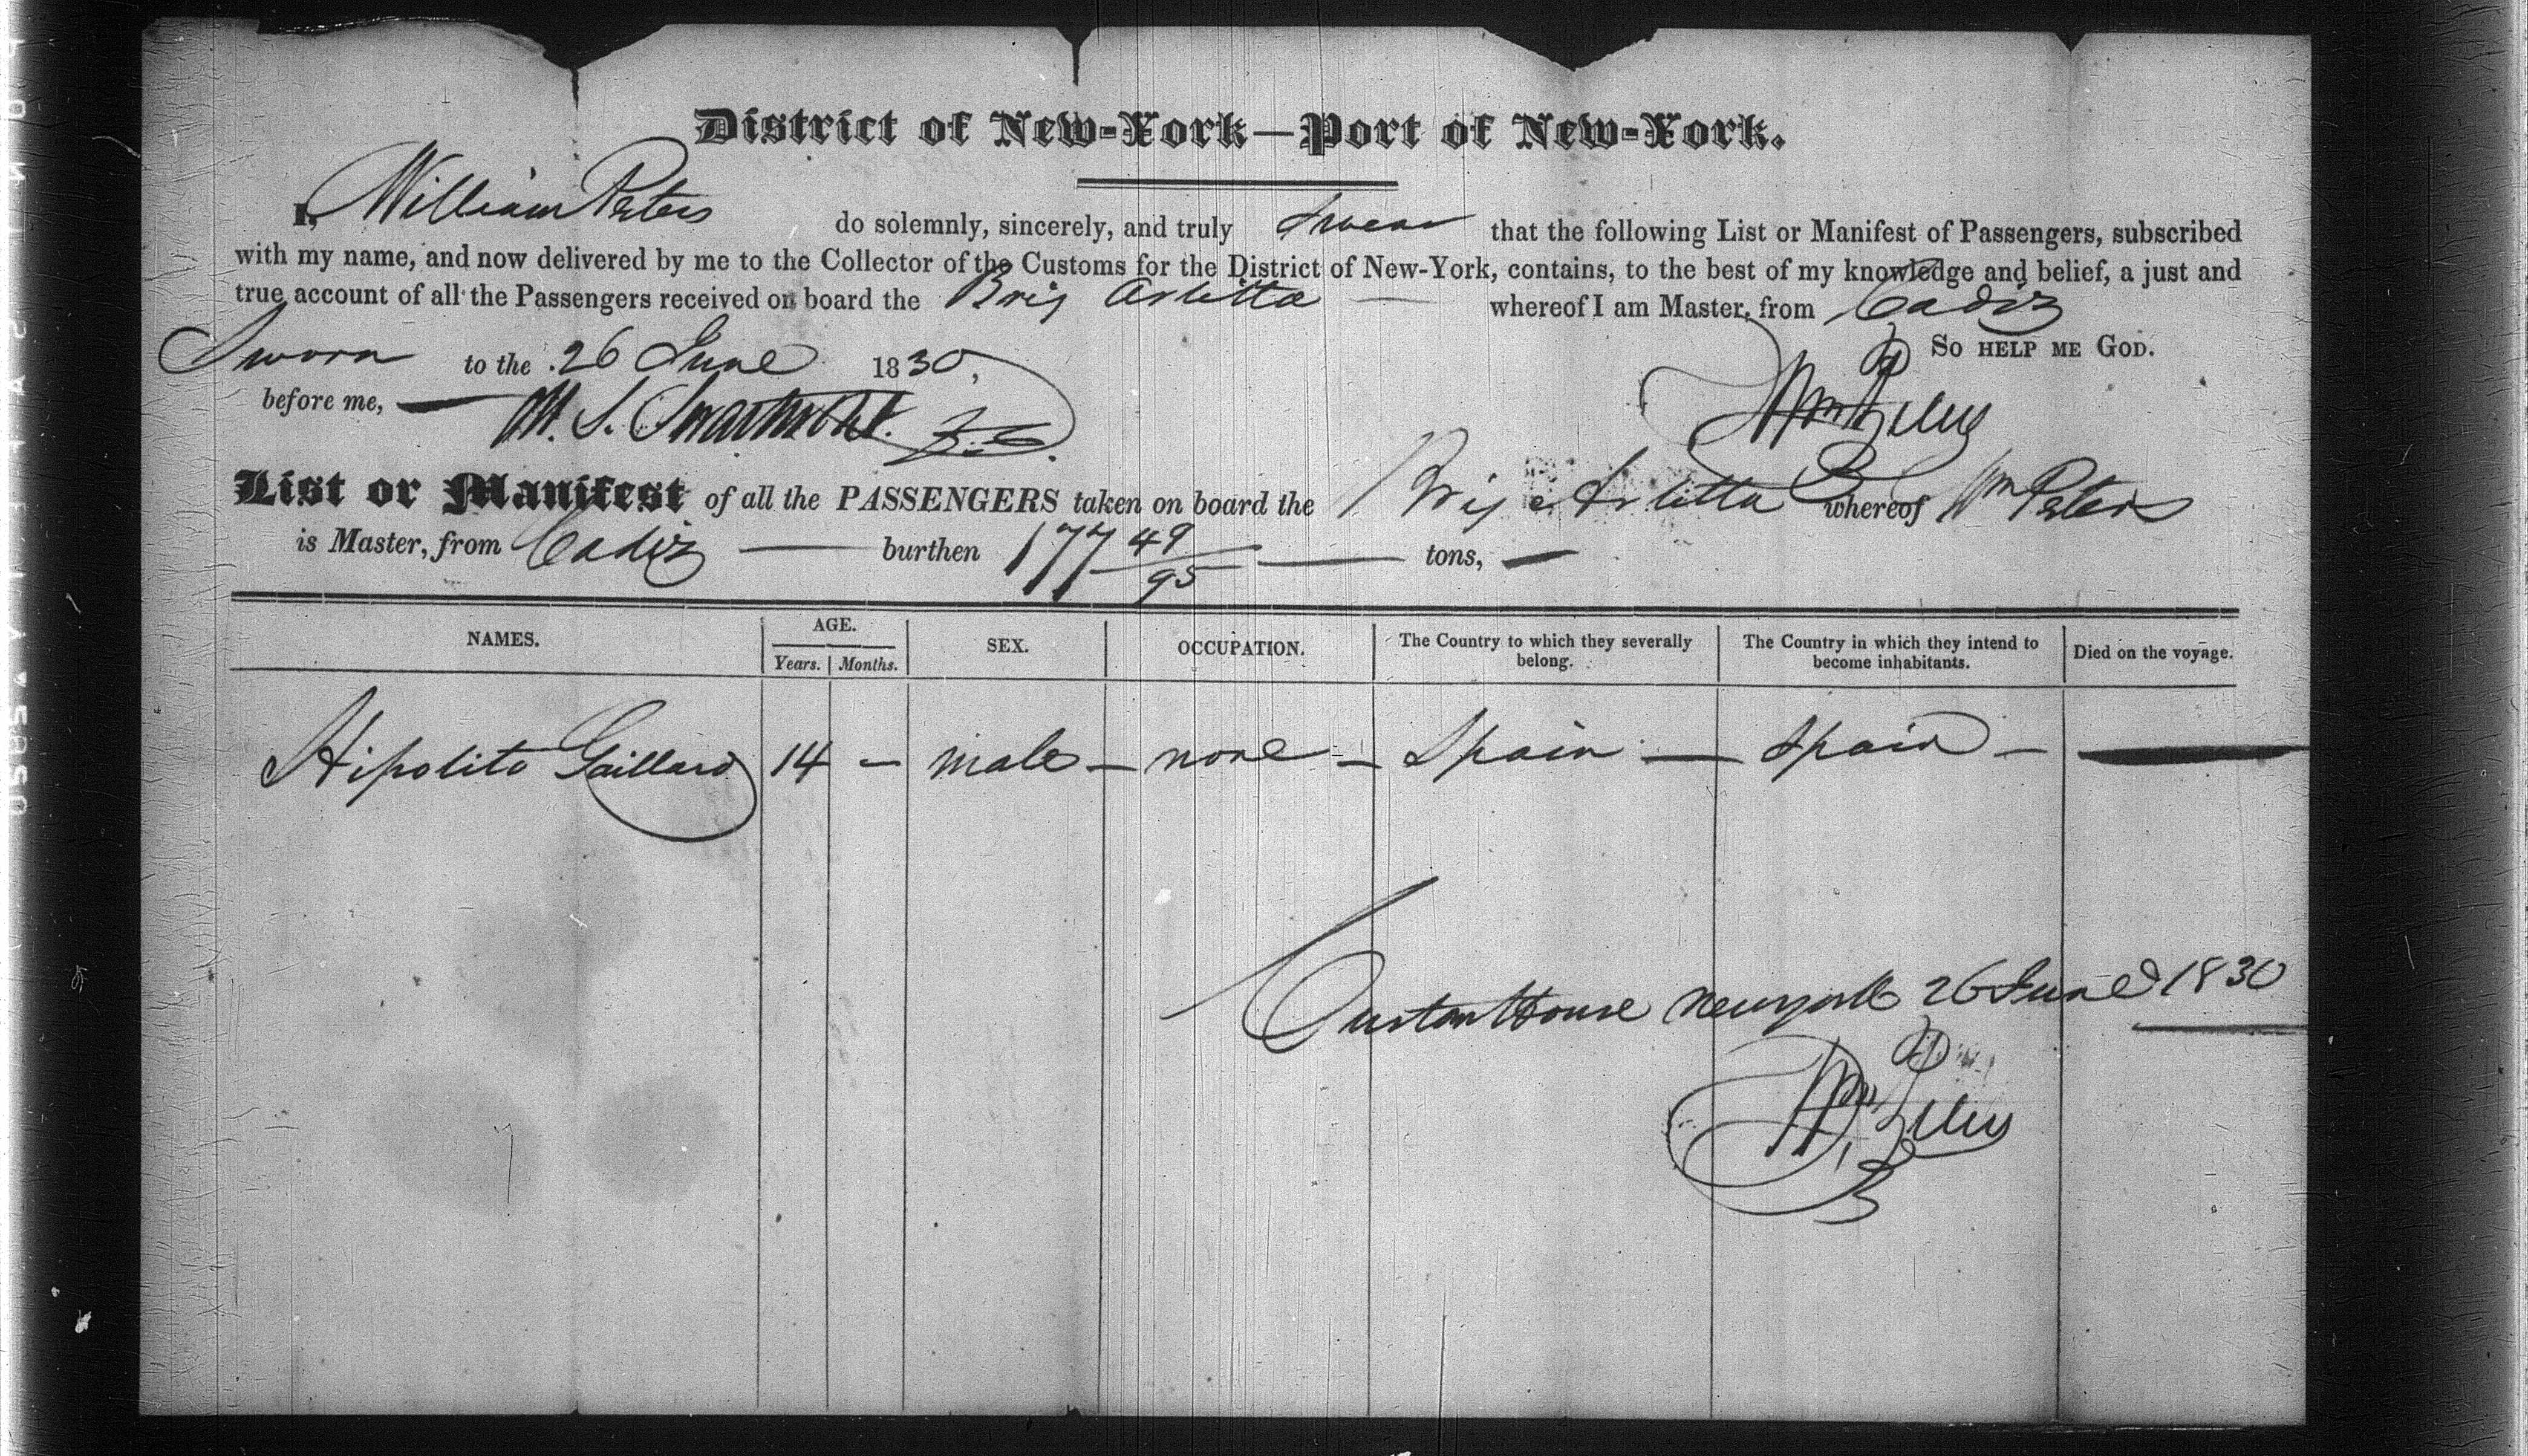 District of New-York—Port of New-York.
I, William Peters do solemnly, sincerely, and truly swear that the following List or Manifest of Passengers, subscribed
with my name, and now delivered by me to the Collector of the Customs for the District of New-York, contains, to the best of my knowledge and belief, a just and
true account of all the Passengers received on board the Brig Arlitta — whereof I am Master, from Cadiz
So help me God.
Sworn to the 26 June 1830,
before me, — M. S. Swartwout.
Wm Peters
List or Manifest of all the PASSENGERS taken on board the Brig Arlitta whereof Wm Peters
is Master, from Cadiz — burthen 177 49/95 — tons, —
NAMES. AGE. SEX. OCCUPATION. The Country to which they severally belong. The Country in which they intend to become inhabitants. Died on the voyage.
Years. Months.
Hipolito Gaillard 14 — male — none — Spain — Spain — —
Custom House Newyork 26 June 1830
Wm Peters